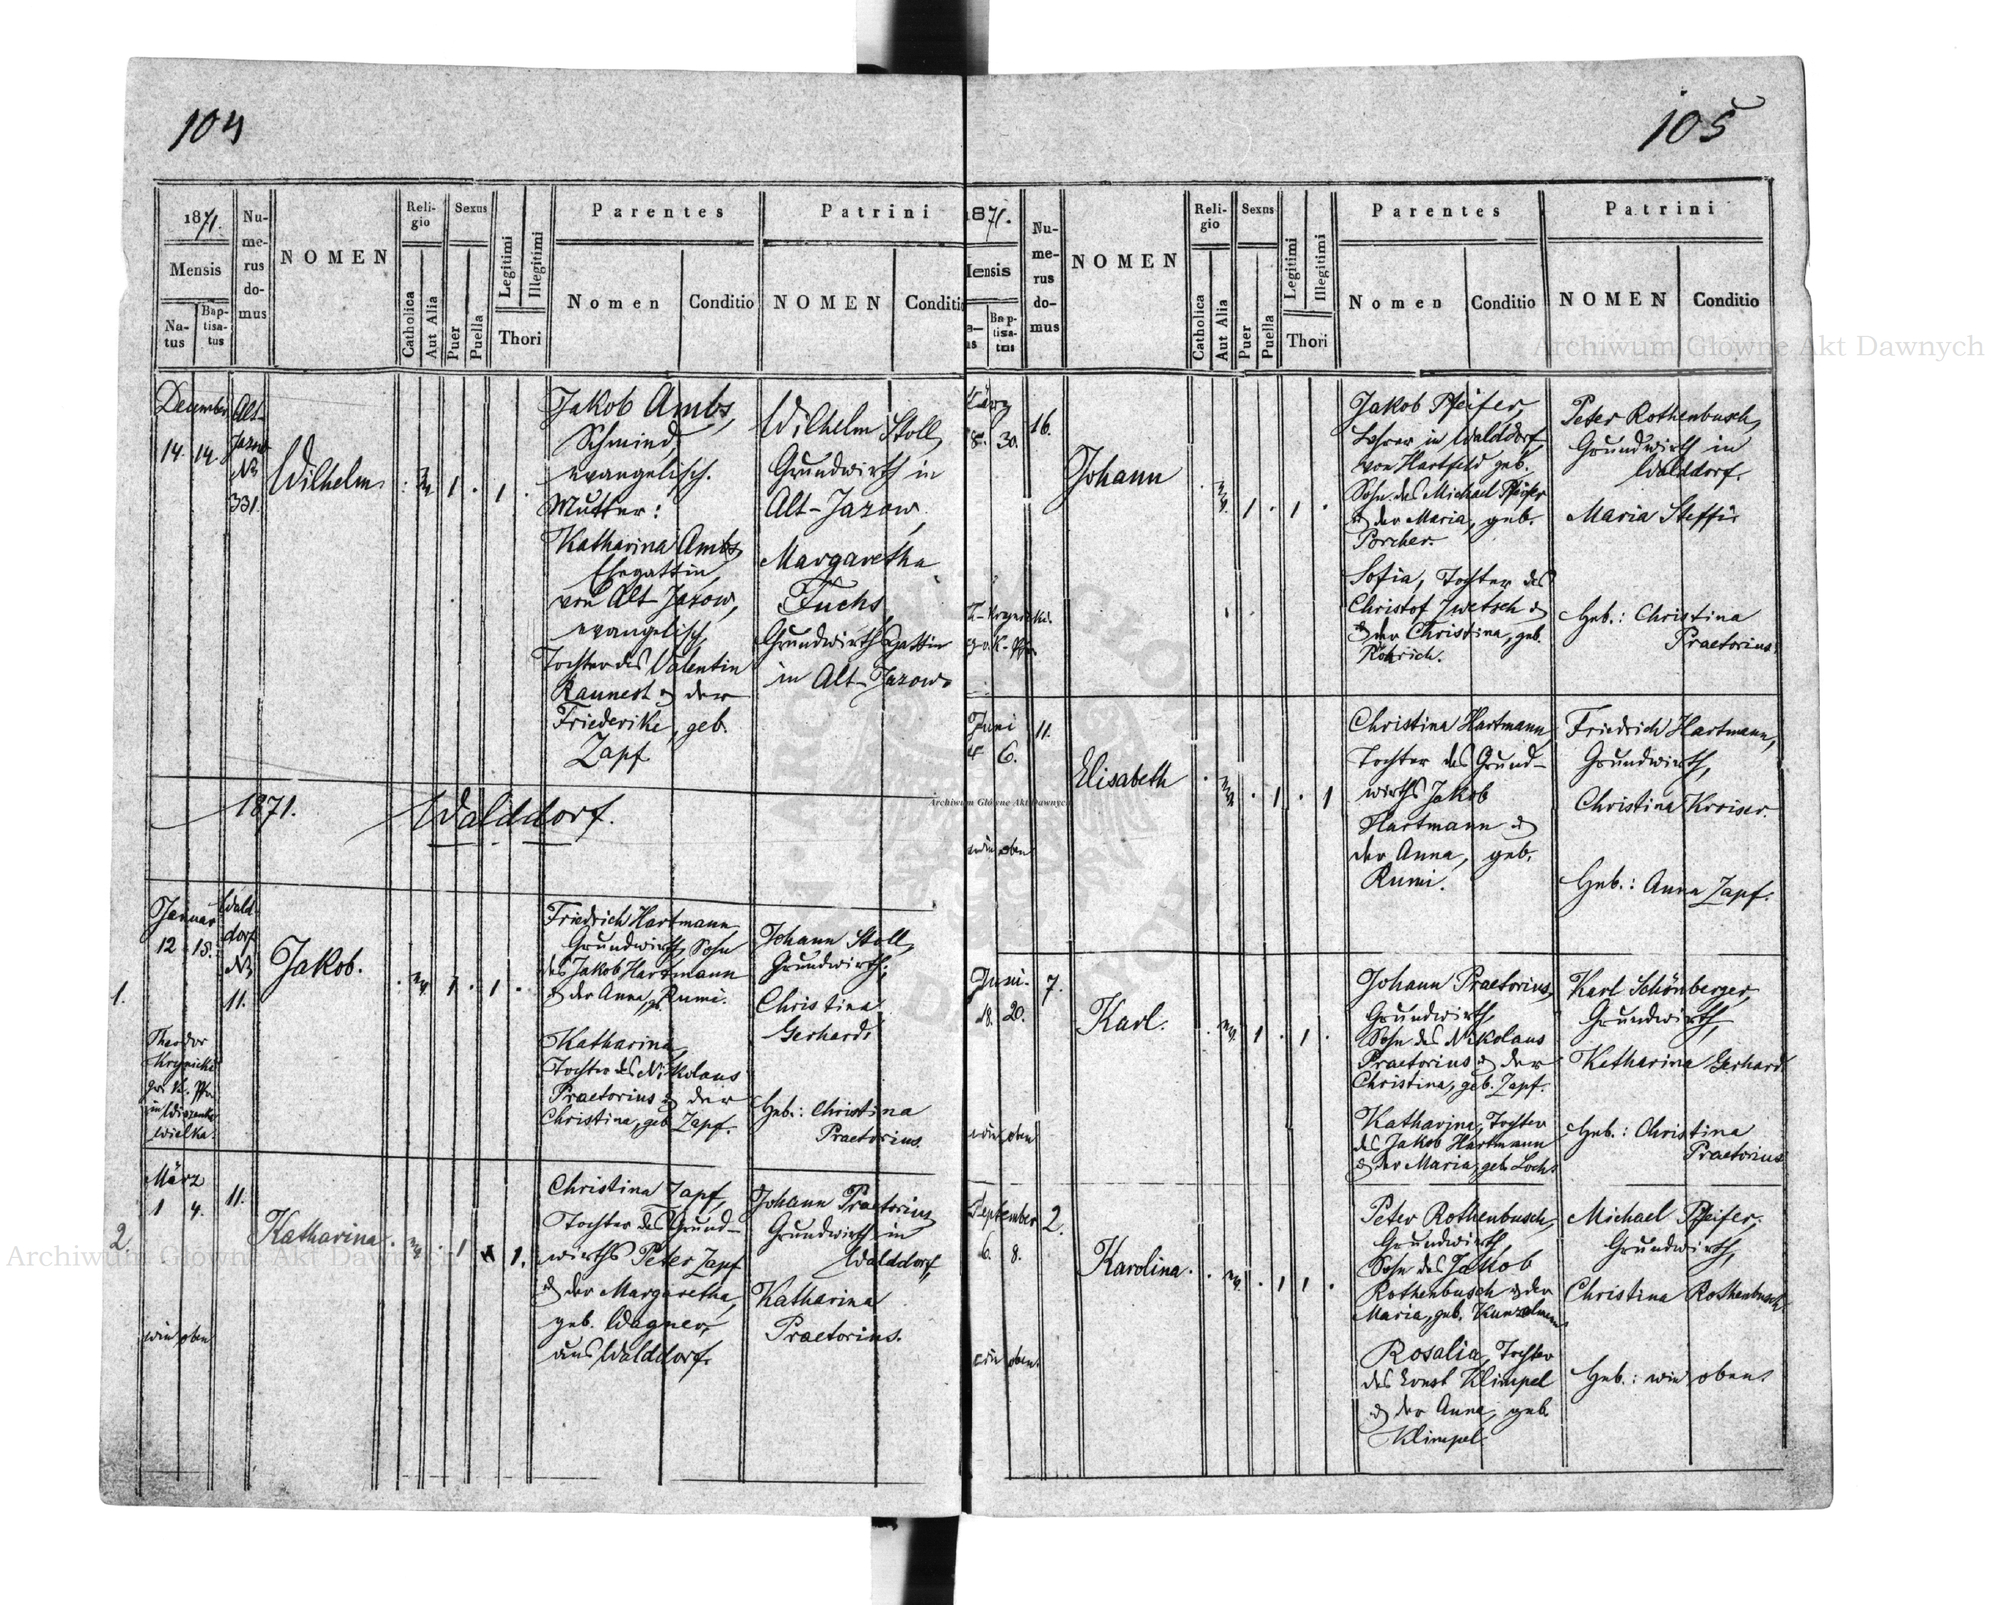 104
1871.
Mensis
Na-
tus
Bap-
tisa-
tus
Nu-
me-
rus
do-
mus
NOMEN
Reli-
gio
Catholica
Aut Alia
Sexus
Puer
Puella
Legitimi
Illegitimi
Thori
Parentes
Nomen
Conditio
Patrini
NOMEN
Conditio
December
14. 14.
Alt-
Jazow
No
331.
Wilhelm
1 . 1 .
Jakob Ambs,
Schmied,
evangelisch.
Mutter:
Katharina Ambs,
Ehegattin,
von Alt-Jazow,
evangelisch,
Tochter des Valentin
Raunest & der
Friederike, geb.
Zapf
Wilhelm Stoll,
Grundwirth in
Alt-Jazow,
Margaretha
Fuchs,
Grundwirthsgattin
in Alt-Jazow.
1871. Walddorf.
1.
Januar
12 15.
Wald-
dorf
No
11.
Theodor
Krynicki
gr. K. Pfr.
in Wiszenka
wielka.
Jakob.
. 1 . 1 .
Friedrich Hartmann
Grundwirth, Sohn
des Jakob Hartmann
& der Anna, g. Rumi.
Katharina,
Tochter des Nikolaus
Praetorius & der
Christina, geb. Zapf.
Johann Stoll,
Grundwirth;
Christina
Gerhard;
Heb.: Christina
Praetorius.
2
März
1 4.
11.
wie oben
Katharina.
1 1.
Christina Zapf,
Tochter des Grund-
wirths Peter Zapf
& der Margaretha,
geb. Wagner,
aus Walddorf.
Johann Praetorius,
Grundwirth in
Walddorf,
Katharina
Praetorius.
105
1871.
Mensis
Bap-
tisa-
tus
Nu-
me-
rus
do-
mus
NOMEN
Reli-
gio
Catholica
Aut Alia
Sexus
Puer
Puella
Legitimi
Illegitimi
Thori
Parentes
Nomen
Conditio
Patrini
NOMEN
Conditio
März
30.
16.
Johann
1 . 1 .
Jakob Pfeifer,
Lehrer in Walddorf,
von Hartfeld geb.
Sohn des Michael Pfeifer
& der Maria, geb.
Porcher.
Sofia, Tochter des
Christof Zwetsch &
& der Christina, geb.
Röhrich.
Peter Rothenbusch,
Grundwirth in
Walddorf.
Maria Steffi.
Heb.: Christina
Praetorius.
Juni
6.
11.
wie oben
Elisabeth
. 1 . 1
Christina Hartmann,
Tochter des Grund-
wirths Jakob
Hartmann &
der Anna, geb.
Rumi.
Friedrich Hartmann,
Grundwirth,
Christina Kreiser.
Heb.: Anna Zapf.
Juni.
18. 20.
7.
wie oben
Karl.
. 1 . 1 .
Johann Praetorius,
Grundwirth,
Sohn des Nikolaus
Praetorius & der
Christina, geb. Zapf.
Katharina, Tochter
des Jakob Hartmann
& der Maria, geb. Loch.
Karl Schönberger,
Grundwirth,
Katharina Gerhard.
Heb.: Christina
Praetorius
September
6. 8.
2.
wie oben.
Karolina.
. 1 1 .
Peter Rothenbusch,
Grundwirth,
Sohn des Jakob
Rothenbusch & der
Maria, geb.
Rosalia, Tochter
des Ernst Klimpel
& der Anna, geb.
Klimpel
Michael Pfeifer,
Grundwirth,
Christina Rothenbusch.
Heb.: wie oben.
Archiwum Główne Akt Dawnych
Archiwum Główne Akt Dawnych
Archiwum Główne Akt Dawnych